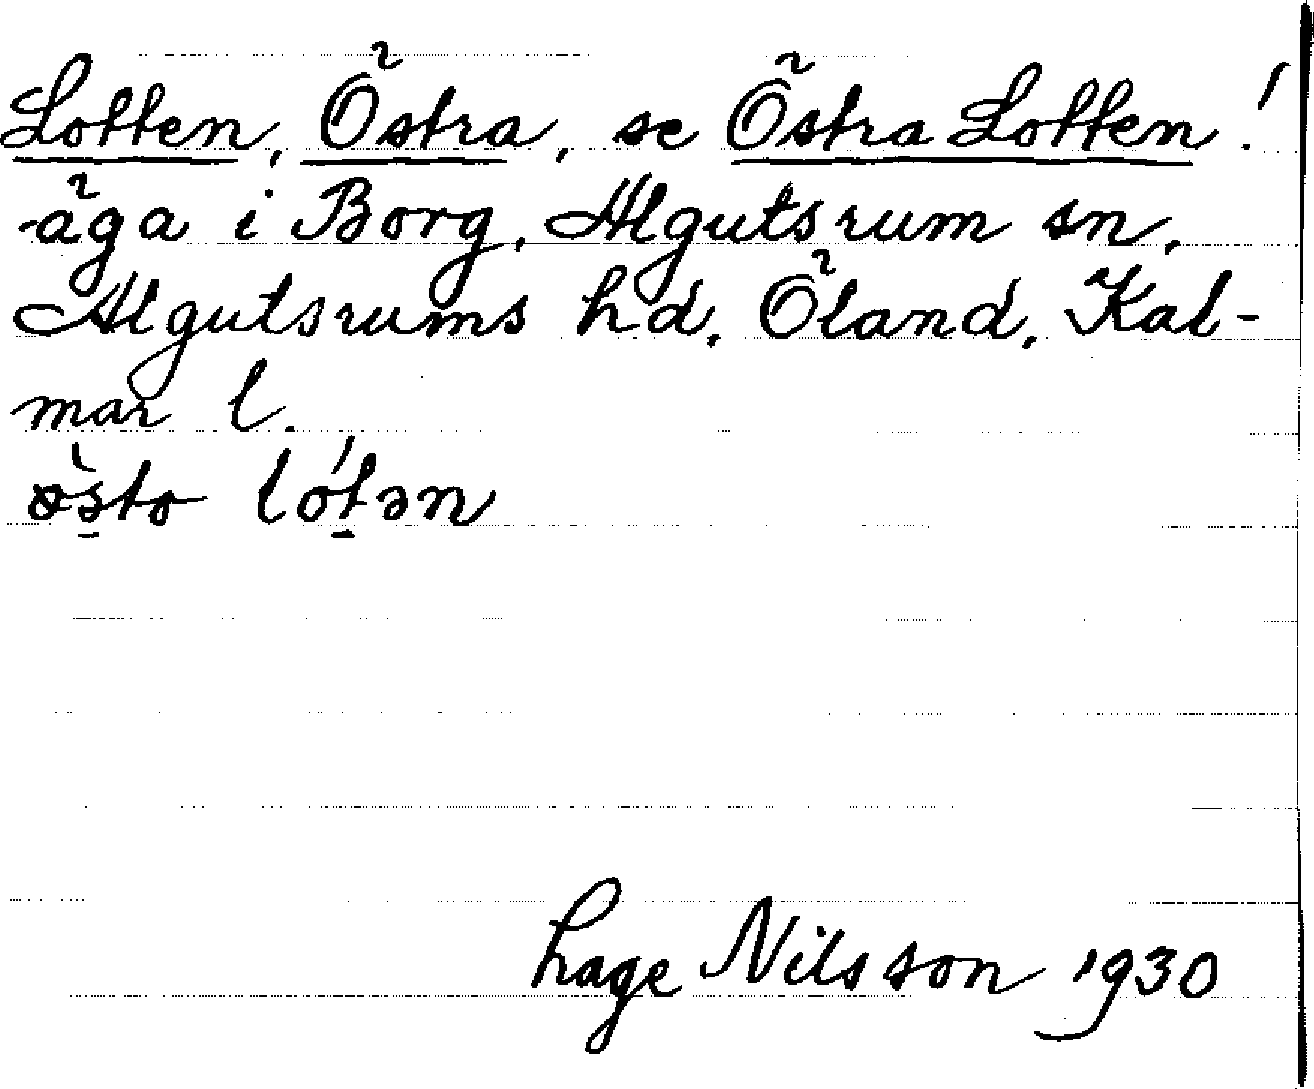 Lotten, Östra, se Östra Lotten!
äga i Borg, Algutsrum sn,
Algutsrums hd, Öland, Kal-
mar l.
lótən
Hage Nilsson 1930